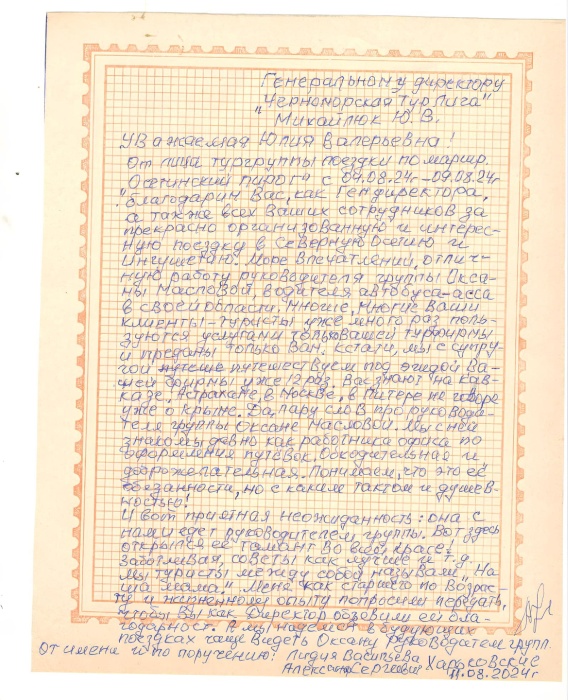 Генеральному директору
"Черноморская ТурЛига"
Михайлюк Ю.В.
Уважаемая Юлия Валерьевна!
От лица тургруппы поездки по маршр.
"Осетинский пирог" с 04.08.24–09.08.24г
благодарим Вас, как Гендиректора,
а также всех Ваших сотрудников за
прекрасно организованную и интерес-
ную поездку в Северную Осетию и
Ингушетию. Море впечатлений, отлич-
ную работу руководителя группы Окса-
ны Масловой, водителя автобуса-асса
в своей области. Многие, многие Ваши
клиенты-туристы уже много раз поль-
зуются услугами только Вашей турфирмы
и преданы только Вам. Кстати, мы с супру-
гой путешествуем под эгидой Ва-
шей фирмы уже 12 раз. Вас знают на Кав-
казе, Астрахане, в Москве, в Питере не говоря
уже о Крыме. Да, пару слов про руководи-
теля группы Оксане Масловой. Мы с ней
знакомы давно как работника офиса по
оформления путёвок. Обходительная и
доброжелательная. Понимаем, что это её
обязанности, но с каким тактом и душев-
ностью!
И вот приятная неожиданность: она с
нами едет руководителем группы. Вот здесь
открылся её талант во всей красе!
Заботливая, советы как лучше и т.д.
Мы туристы между собой называли "На-
ша мама". Меня как старшего по возрас-
ту и жизненному опыту попросили передать,
чтобы Вы как Директор объявили ей бла-
годарность. А мы надеемся в будующих
поездках чаще видеть Оксану руководителем групп.
От имени и по поручению: Лидия Васильева Харьковские
Александр Сергеевич 11.08.2024г